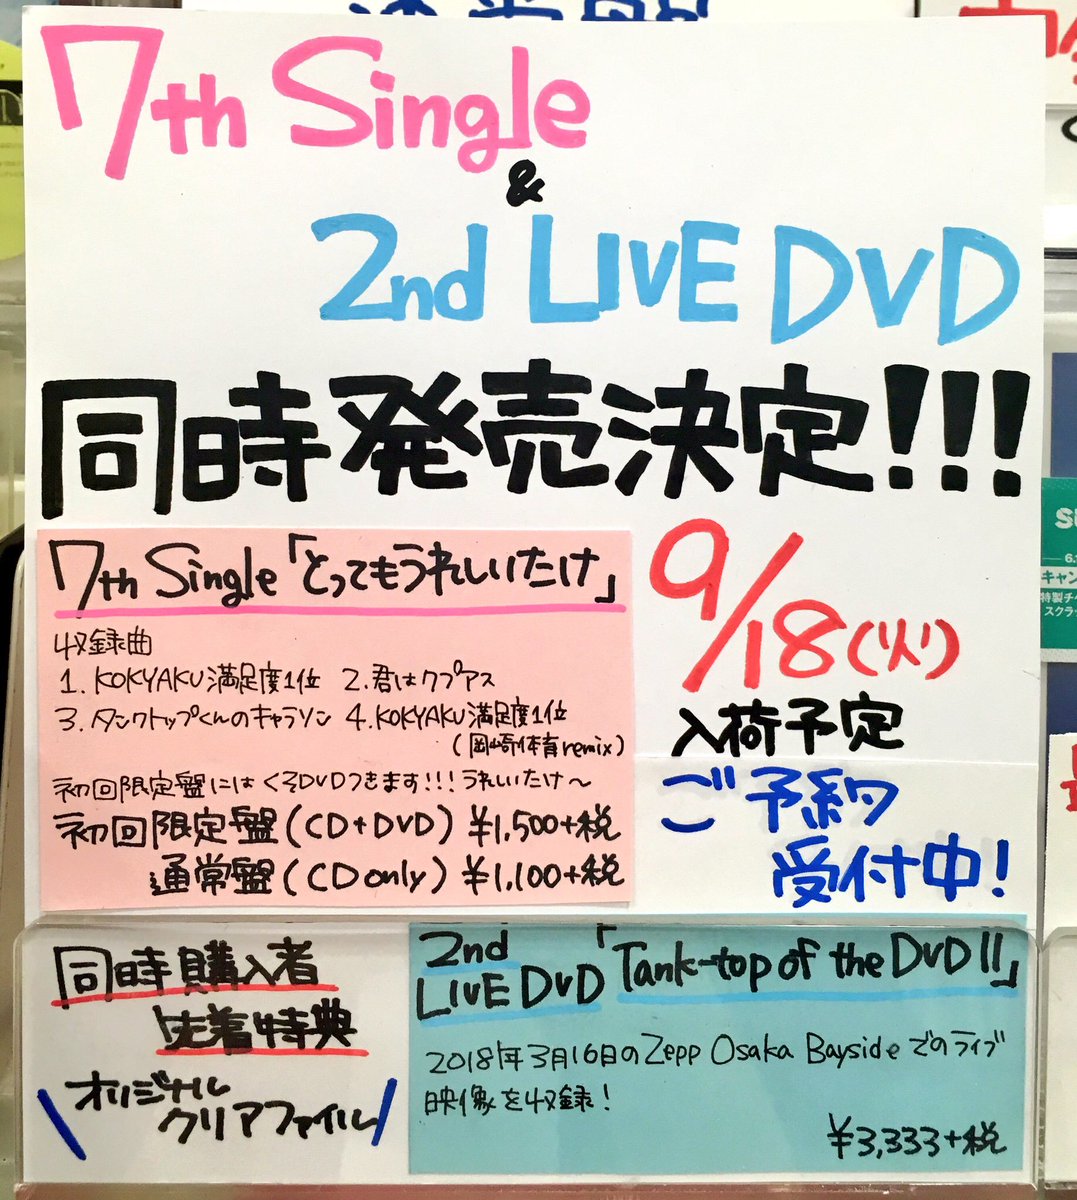 7th Single
&
2nd LIVE DVD
同時発売決定!!!
7th Single「とってもうれしいたけ」
収録曲
1. KOKYAKU満足度1位 2. 君はクプアス
3. タンクトップくんのキャラソン 4. KOKYAKU満足度1位
(岡崎体育remix)
初回限定盤にはくそDVDつきます!!! うれしいたけ〜
初回限定盤(CD+DVD) ¥1,500+税
通常盤(CD only) ¥1,100+税
9/18(火)
入荷予定
ご予約
受付中!
同時購入者
先着特典
\オリジナル
クリアファイル/
2nd
LIVE DVD「Tank-top of the DVD II」
2018年3月16日のZepp Osaka Baysideでのライブ
映像を収録!
¥3,333+税
キャン
特製チ
スクラッ